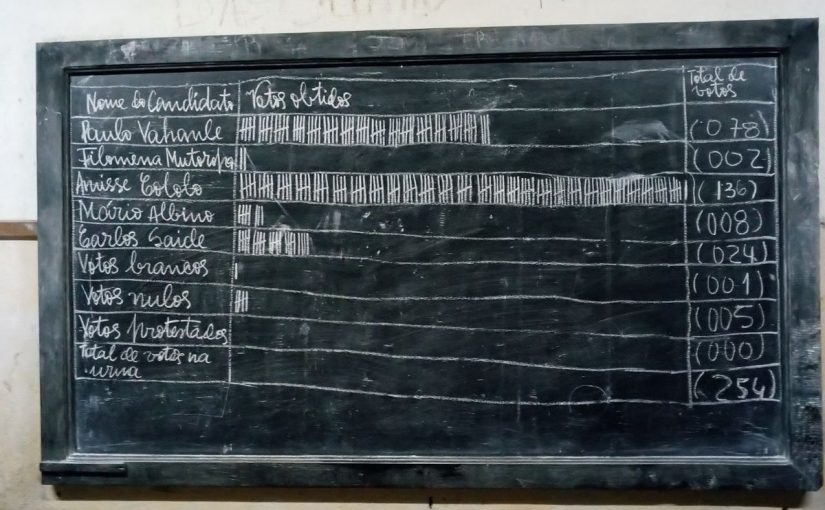 Nome do Candidato Votos obtidos Total de votos
Paulo Vahanle (078)
Filomena Mutoropa (002)
Amisse Cololo (136)
Mário Albino (008)
Carlos Saide (024)
Votos brancos (001)
Votos nulos (005)
Votos protestados (000)
Total de votos na urna (254)